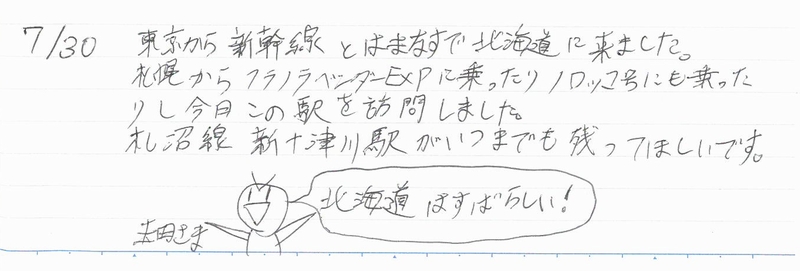 7/30 東京から新幹線とはまなすで北海道に来ました。
札幌からフラノラベンダーEXPに乗ったりノロッコ号にも乗った
りし今日この駅を訪問しました。
札沼線 新十津川駅がいつまでも残ってほしいです。
北海道はすばらしい!
吉田さま